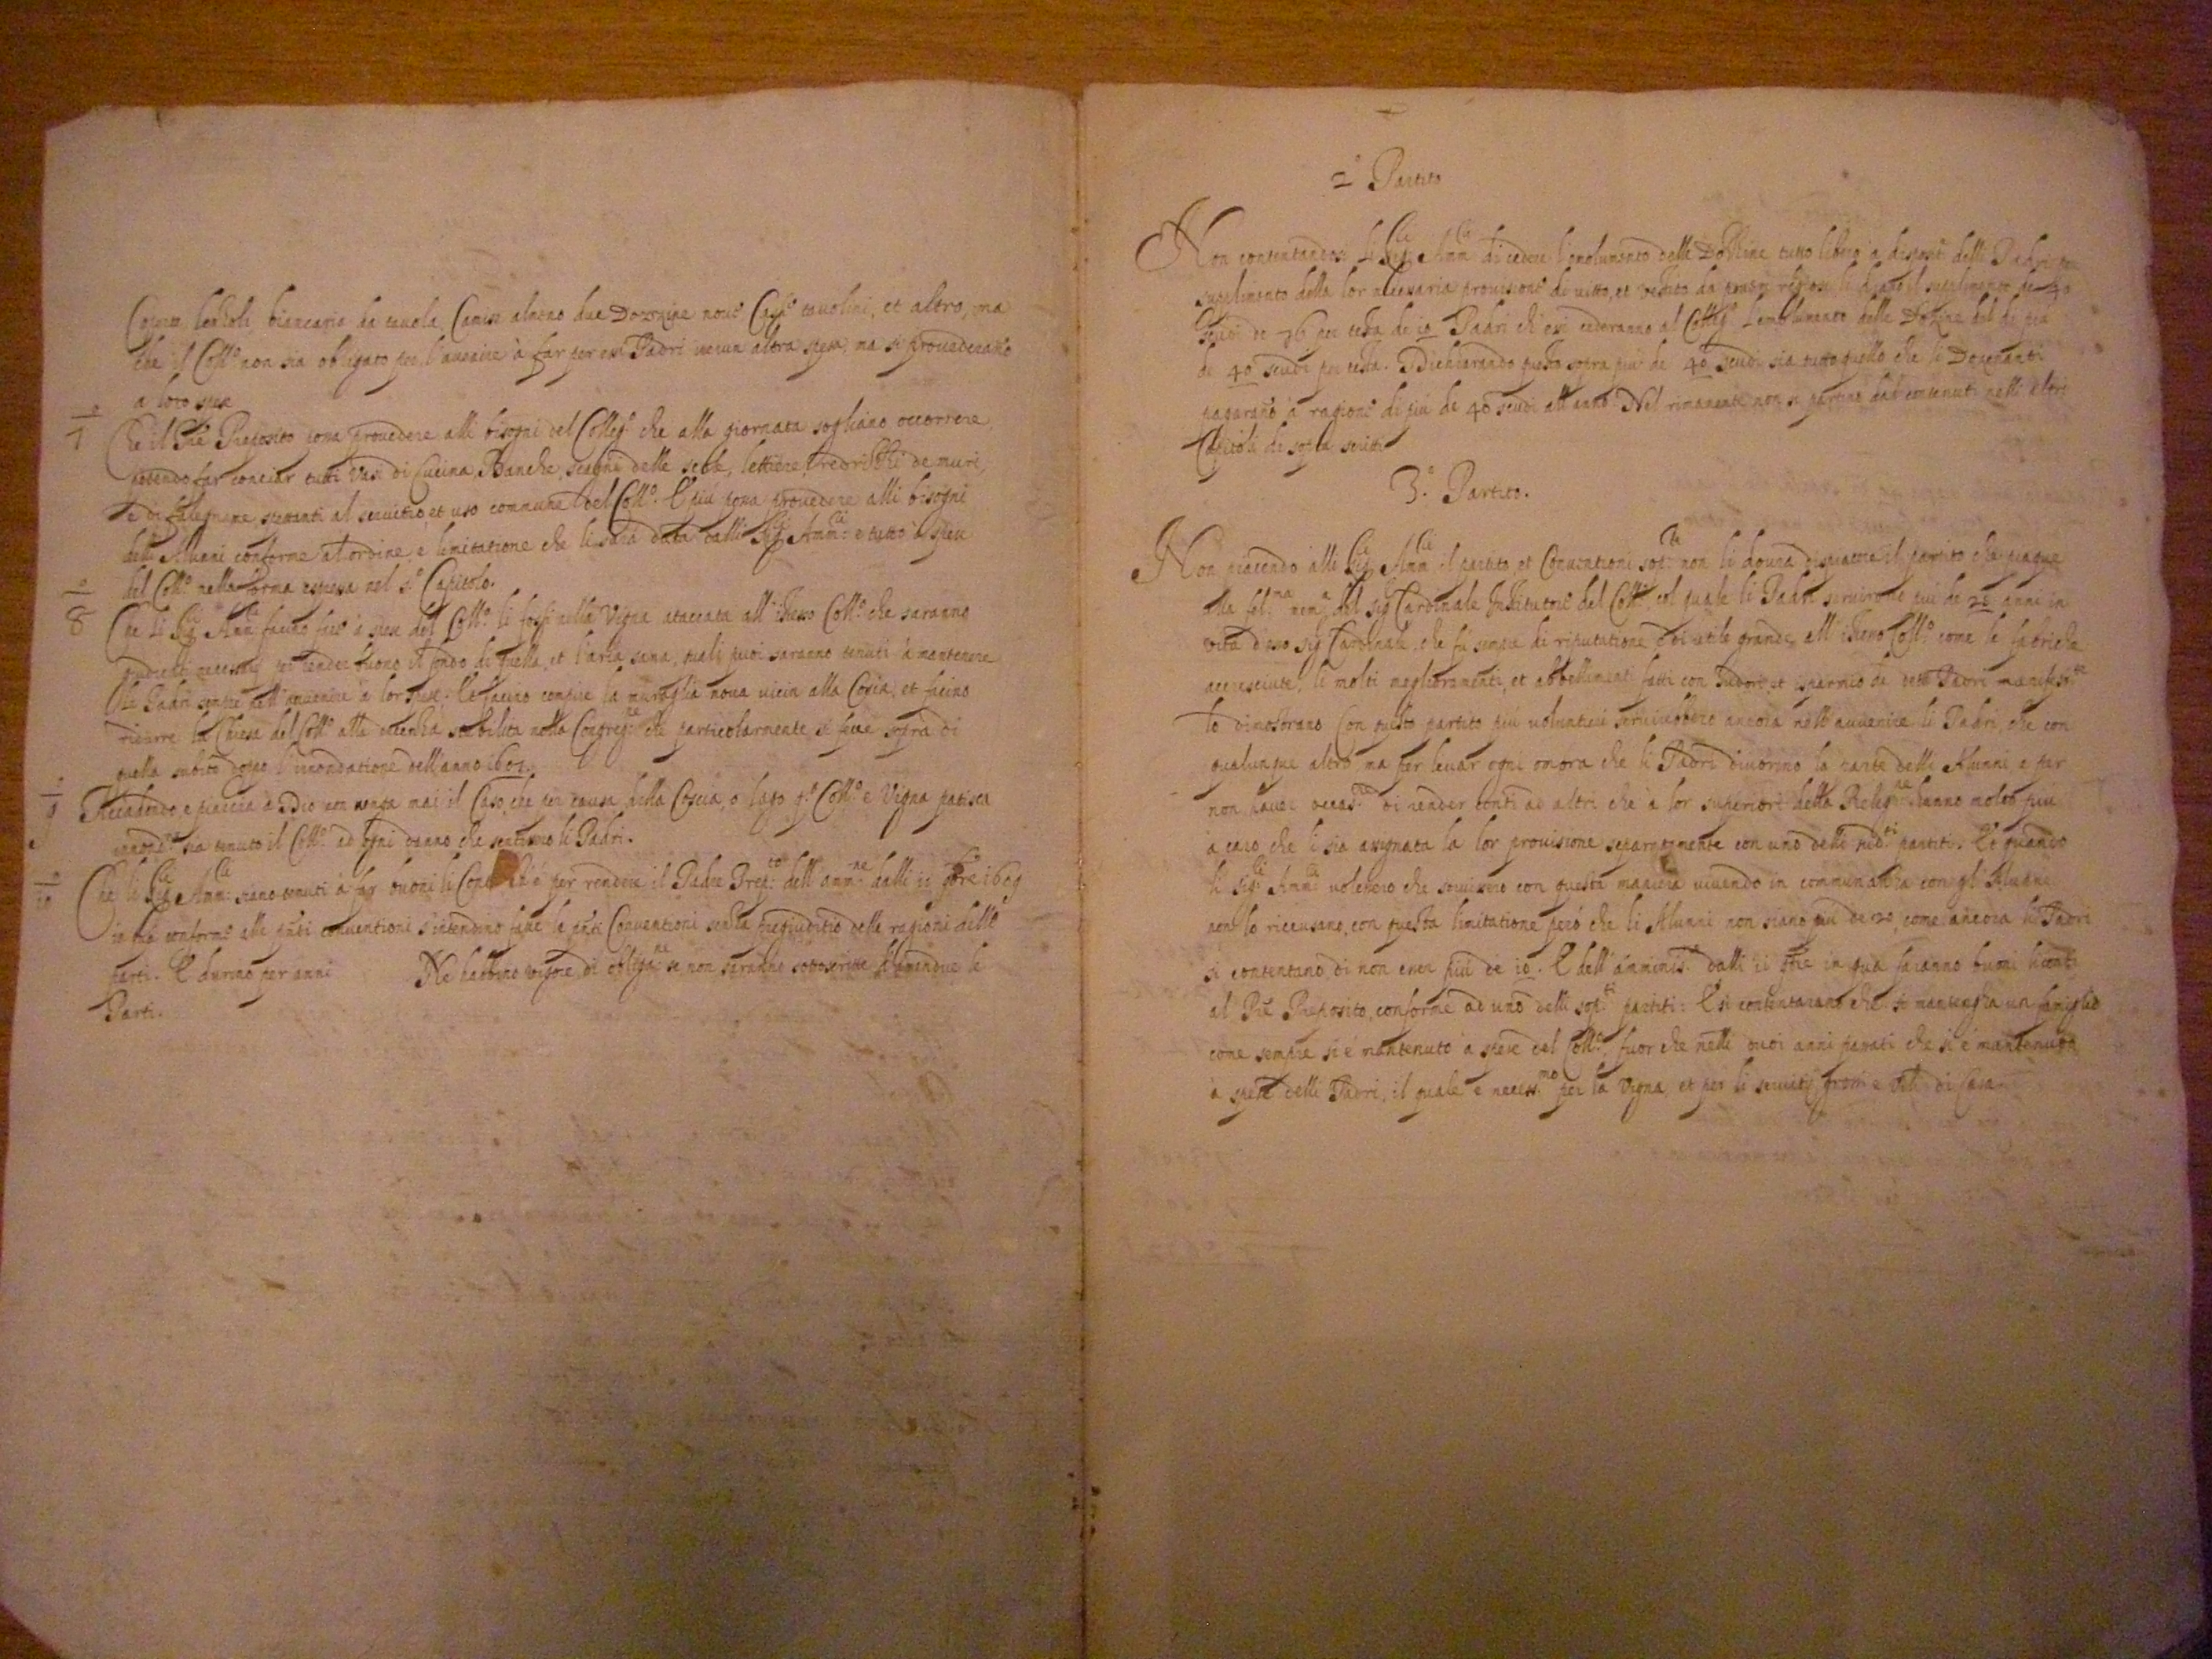 Coperte, lenzoli, biancaria da tavola, Camise almeno due Dozzine nove Casse tavolini, et altro, ma
che il Coll.º non sia obligato per l'avenire à far per essi Padri verun altra spesa, ma si provederanno
a loro spese
7º
Che il Prê Preposito possa provedere alli bisogni del Colleg.º che alla giornata sogliano occorrere,
potendo far conciar tutti Vasi di Cucina, Banche, scanni delle scole, lettiere, de muri,
e di falegname spettanti al servitio, et uso commune del Coll.º E più possa provedere alli bisogni
delli Alunni conforme al ordine, e limitatione che li sarà data dalli Sig.ri Amm.ri e tutto à spese
del Coll.º nella forma espressa nel Capitolo.
8º
Che li Sig.ri Amm.ri facino fare à spese del Coll.º li fossi nella Vigna ataccata all'istesso Coll.º che saranno
giudicati necessarij per render buono il fondo di quella, et l'aria sana, quali puoi saranno tenuti à mantenere
li Padri sempre nell'avenire à lor spese. Et faccino compire la muraglia nova vicin alla Coscia, et facino
ridurre la Chiesa del Coll.º alla stabilita nella Congreg.ne che particolarmente si fece sopra di
quella subito dopo l'inondatione dell'anno 1601.
9º
Accadendo e piaccia à Dio non venga mai il Caso, che per causa della Coscia, o lago q.º Coll.º e Vigna patisca
sia tenuto il Coll.º ad ogni danno che sentissero li Padri.
10º
Che li Sig.ri Amm.ri siano tenuti à far buoni li Conti per rendere il Padre Prep.to dell'amm.ne dalli 11 1609
in quà conforme alle p̃nti conventioni s'intendino fatte le p̃nti Conventioni senza pregiuditio delle ragioni delle
parti. E durino per anni Ne habbino vigore di oblig.ne se non saranno sottoscritte d'amendue le
Parti.
2º Partito
Non contentandosi li Sig.ri Amm.ri di cedere l'emolumento delle Dozzine tutto libero à disposit. delli Padri
suplimento della lor necessaria provisione di vitto, et vestito da religiosi, li diano il suplimento de 40
scudi de 36 per testa de 10 Padri ch'essi cederanno al Colleg.º l'emolumento delle Dozzine del di più
de 40 scudi per testa. Dichiarando questo sopra più de 40 scudi sia tutto quello che li Dozenanti
pagarano à ragione di più de 40 scudi all'anno. Nel rimanente non si partino dal contenuti nelli altri
Capitoli di sopra scritti
3º. Partito.
Non piacendo alli Sig.ri Amm.ri il partito, et Conventioni sop.te non li dovrà dispiacere il partito che piaque
alla fel.ma mem.a del Sig.r Cardinale Institutore del Coll.º col quale li Padri servirono più de 20 anni in
vita d'esso Sig.r Cardinale, che fù sempre di riputatione e di utile grande all'istesso Coll.º come le fabriche
accresciute, li molti megliramenti, et abbellimenti fatti con sudori, et isparmio de detti Padri manifest.te
lo dimostrano. Con questo partito più volontieri servirebbero ancora nell'avvenire li Padri, che con
qualunque altro ma per levar ogni omora che li Padri divorino la parte delli Alunni e per
non haver occas.ne di render conti ad altri che à lor superiori della Relig.ne hanno molto più
à caro che li sia assegnata la lor provisione separatamente con uno delli sud.ti partiti. Et quando
li Sig.ri Amm.ri volessero che servissero con questa maniera vivendo in communanza con gl'Alunni
non lo riccusano, con questa limitatione però che li Alunni non siano più de 20, come ancora li Padri
si contentano di non esser più de 10. E dell'amminis.ne dalli 11 in qua faranno buoni li conti
al Prê Preposito, conforme ad uno delli sop.ti partiti: E si contentarano che si mantenga un famiglio
come sempre si è mantenuto à spese del Coll.º, fuor che nelli duoi anni passati che si è mantenuto
à spese delli Padri, il quale è necess.mo per la Vigna, et per li servitij grossi e vili di Casa.